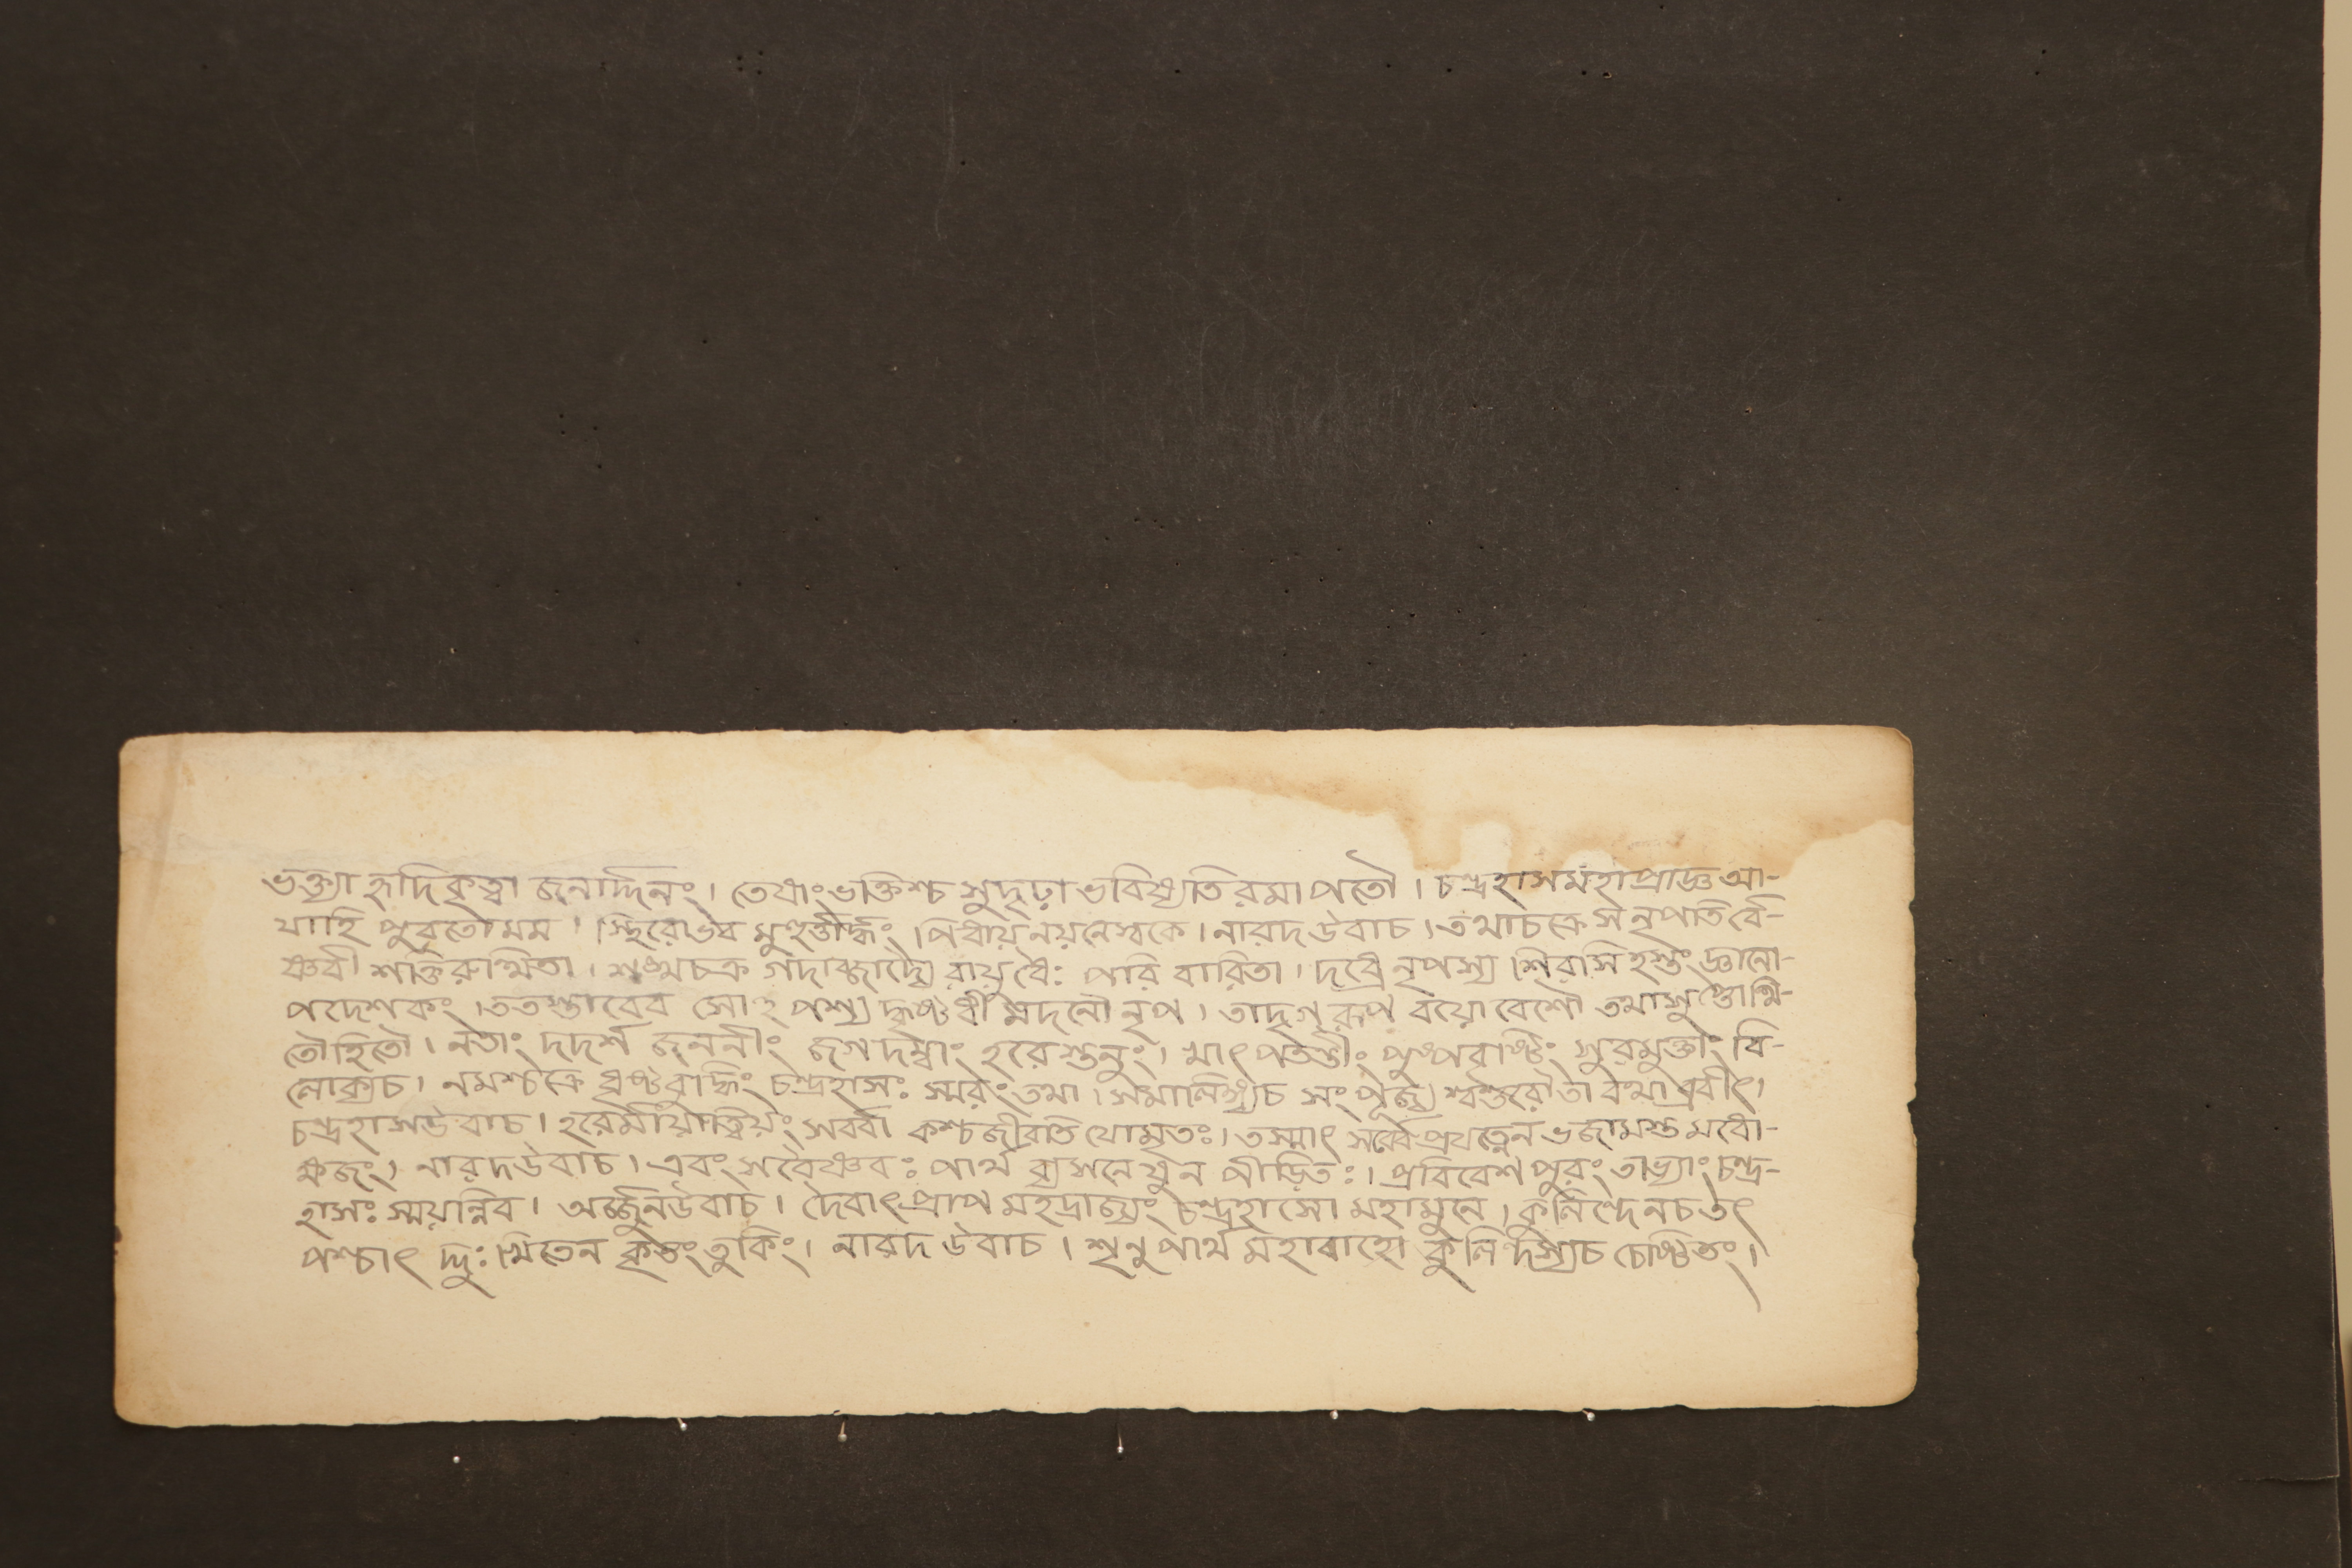 ভক্ত্যা হৃদিকৃত্বা জনাদ্দিনং। তেষাং ভক্তিশ্চ সুদৃঢ়া ভবিষ্যতি রমাপতৌ। চন্দ্রহাসমহাপ্রাজ্ঞ আ-
যাহি পুরতোমম। স্থিরোভব মুহূর্ত্তার্দ্ধং। পিধায় নয়নেস্বকে। নারদ উবাচ। তথাচক্রে স নৃপতির্বৈ-
ষ্ণবী শক্তিরুত্থিতা। শঙ্খচক্র গদাব্জাদ্যৈ রায়ুধৈঃ পরিবারিতা। দধ্রে নৃপস্য শিরসি হস্তং জ্ঞানো-
পদেশকং। ততস্তাবেব সোহপশ্য দ্ধৃষ্টধী মদনৌ নৃপ। তাদৃগ্ রূপ বয়ো বেশৌ তথাসুপ্তোত্থি-
তৌহিতৌ। নতাং দদর্শ জননীং জগদম্বাং হরেস্তনুং। খাৎ পতন্তীং পুষ্পবৃষ্টিং সুরমুক্তাং বি-
লোক্যচ। নমশ্চক্রে ধৃষ্টবুদ্ধিং চন্দ্রহাসঃ স্মরং তথা। সমালিঙ্গ্যচ সংপূজ্য শ্বশুরৌ তা বথা ব্রবীৎ।
চন্দ্রহাসউবাচ। হরের্মায়াত্বিয়ং সর্ব্বা কশ্চজীবতি যোমৃতঃ। তস্মাৎ সর্ব্বপ্রযত্নেন ভজামস্ত মধো-
ক্ষজং। নারদউবাচ। এবং সবৈষ্ণবঃ পার্থ ব্যসনেষু ন পীড়িতঃ। প্রবিবেশ পুরং তাভ্যাং চন্দ্র-
হাসঃ স্ময়ন্নিব। অর্জ্জুনউবাচ। দৈবাৎ প্রাপ মহদ্রাজ্যং চন্দ্রহাসো মহামুনে। কুলিন্দেনচ তৎ
পশ্চাৎ দ্দুঃখিতেন কৃতং তুকিং। নারদ উবাচ। শৃনু পার্থ মহাবাহো কুলিন্দস্যচ চেষ্টিতং।